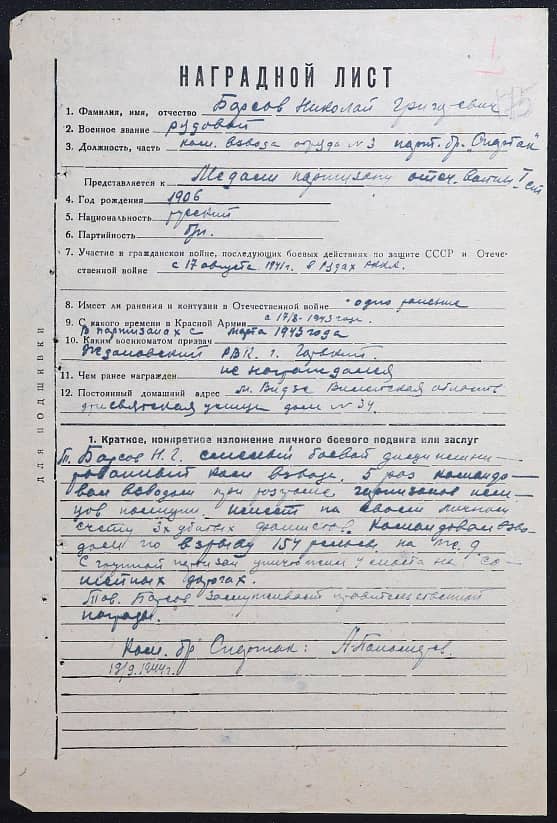 НАГРАДНОЙ ЛИСТ
1. Фамилия, имя, отчество Барсов Николай
2. Военное звание рядовой
3. Должность, часть ком. взвода отряда №3 парт. бр. „Спартак"
Представляется к Медали партизану отеч. войны I ст
4. Год рождения 1906
5. Национальность русский
6. Партийность б/п.
7. Участие в гражданской войне, последующих боевых действиях по защите СССР и Отече-
ственной войне с 17 августа 1941г. в рядах РККА.
8. Имеет ли ранения и контузии в Отечественной войне одно ранение
9. С какого времени в Красной Армии
В партизанах с марта 1943 года
10. Каким военкоматом призван
Ждановский РВК г. Горький.
11. Чем ранее награжден не награждался
12. Постоянный домашний адрес м. Видзе Вилейская область
улица дом №34.
ДЛЯ ПОДШИВКИ
1. Краткое, конкретное изложение личного боевого подвига или заслуг
т. Барсов Н.Г. смелый боевой дисциплини-
рованный ком взвода. 5 раз командо-
вал взводом при разгроме гарнизонов нем-
цев полиции. Имеет на своем личном
счету 3х убитых фашистов. Командовал взво-
дом по взрыву 154 рельс на ж.д.
С группой партизан уничтожил 4 моста на
дорогах.
Тов. Барсов заслуживает правительственной
награды.
Ком. бр Спартак:
19/9.1944г.